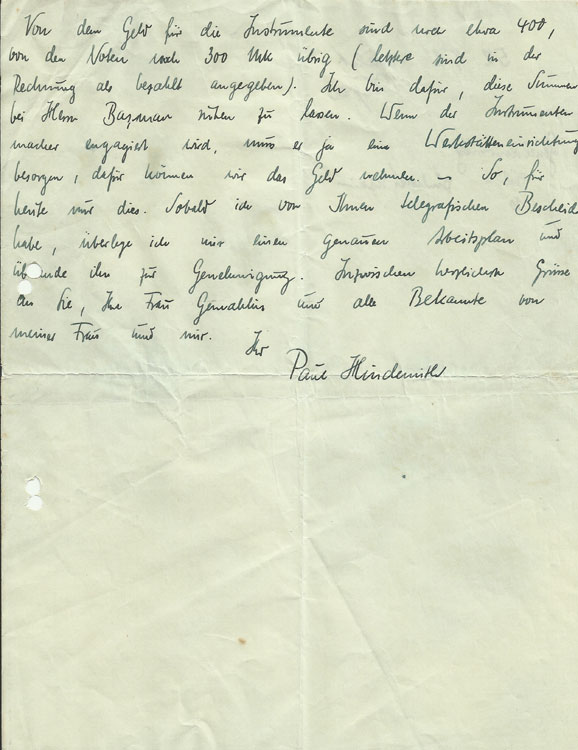 Von dem Geld für die Instrumente sind noch etwa 400,
von den Noten noch 300 Mk übrig (letztere sind in der
Rechnung als bezahlt angegeben). Ich bin dafür, diese Summen
bei Herrn Bazman ruhen zu lassen. Wenn der Instrumenten
macher engagiert wird, muss er ja eine Werkstätteneinrichtung
besorgen, dafür können wir das Geld nehmen. – So, für
heute nur dies. Sobald ich von Ihnen telegrafischen Bescheid
habe, überlege ich mir einen genauen Arbeitsplan und
übsende ihn zur Genehmigung. Inzwischen herzlichste Grüsse
an Sie, Ihre Frau Gemahlin und alle Bekannte von
meiner Frau und mir.
Ihr
Paul Hindemith